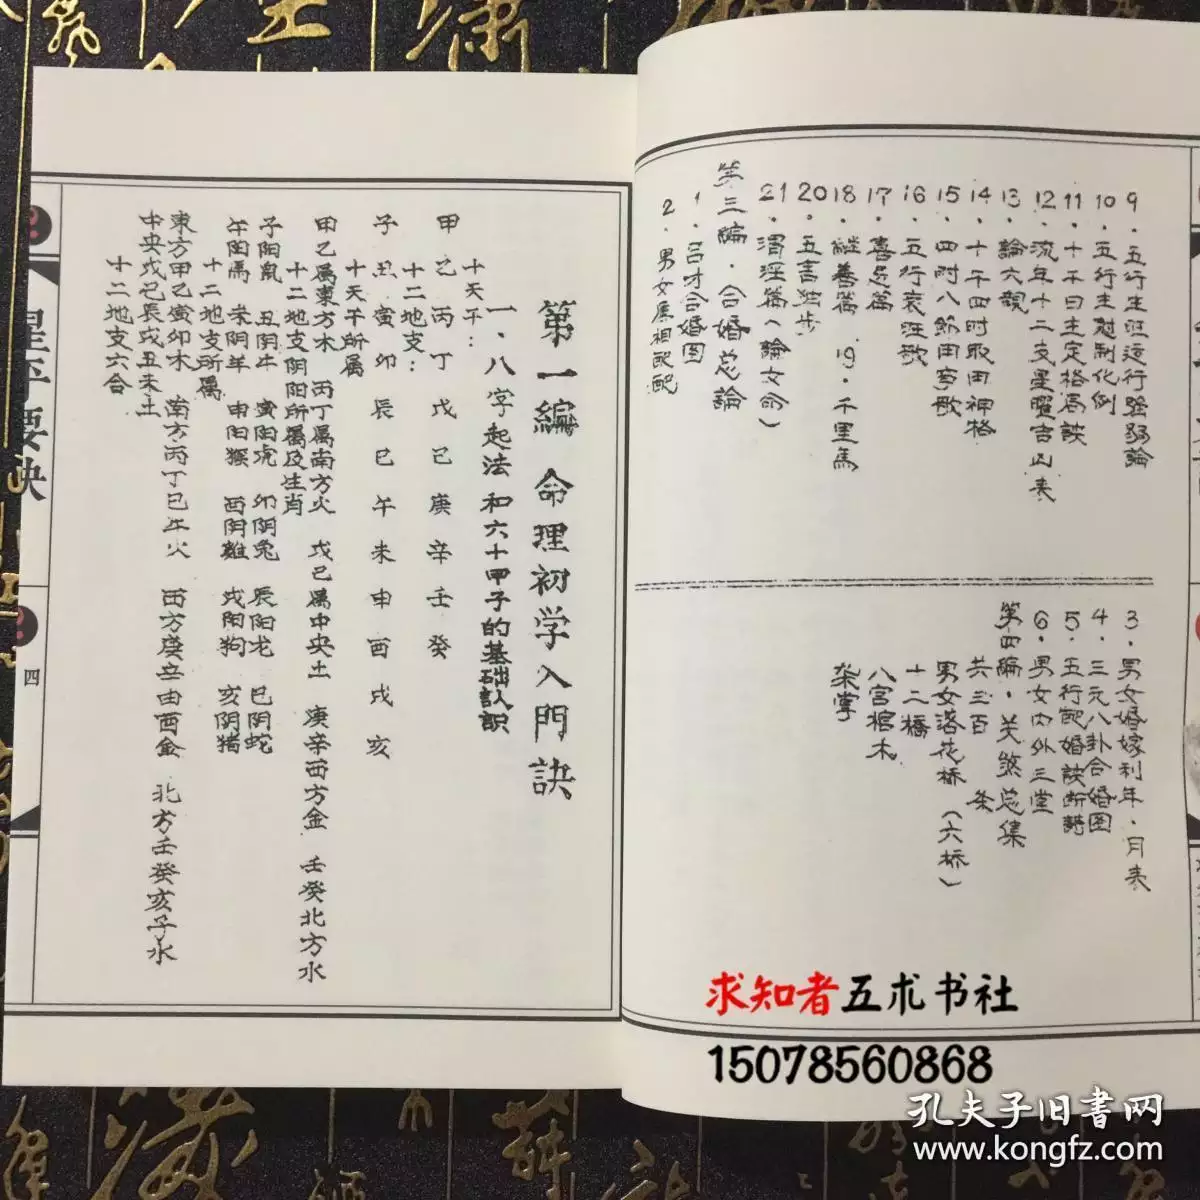 9.五行生旺运行强弱論
10.五行生尅制化例
11.十干日主定格局訣
12.流年十二支星曜吉凶表
13.論六親
14.十干四时取用神格
15.四时八節用事歌
16.五行衰旺歌
17.喜忌篇
18.継善篇 19.千里馬
20.五言独步
21.渭泾篇(論女命)
第三編.合婚总論
1.吕才合婚图
2.男女屬相配配
3.男女婚嫁利年.月表
4.三元八卦合婚图
5.五行配婚訣断語
6.男女内外三堂
第四編.关煞总集
共三百 条
男女落花桥(六桥)
十二橋
八宫棺木
架掌
第一編 命理初学入門訣
一、八字起法和六十甲子的基础认識
十天干:
甲乙丙丁戊己庚辛壬癸
十二地支:
子丑寅卯辰巳午未申酉戌亥
十天干所属
甲乙属東方木 丙丁属南方火 戊己属中央土 庚辛西方金 壬癸北方水
十二地支阴阳所属及生肖
子阳鼠 丑阴牛 寅阳虎 卯阴兔 辰阳龙 巳阴蛇
午阳馬 未阴羊 申阳猴 酉阴雞 戌阳狗 亥阴猪
十二地支所属
東方甲乙寅卯木 南方丙丁巳午火 西方庚辛申酉金 北方壬癸亥子水
中央戊己辰戌丑未土
十二地支六合
星平要訣
四
求知者五术书社
15078560868
孔夫子旧書网
www.kongfz.com